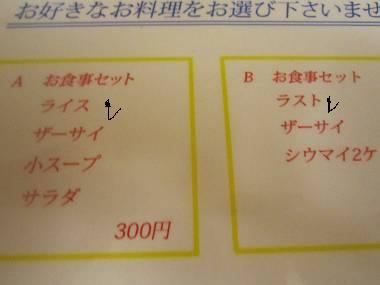 お好きなお料理をお選び下さいませ
A お食事セット
ライス
ザーサイ
小スープ
サラダ
300円
B お食事セット
ラスト
ザーサイ
シウマイ2ケ